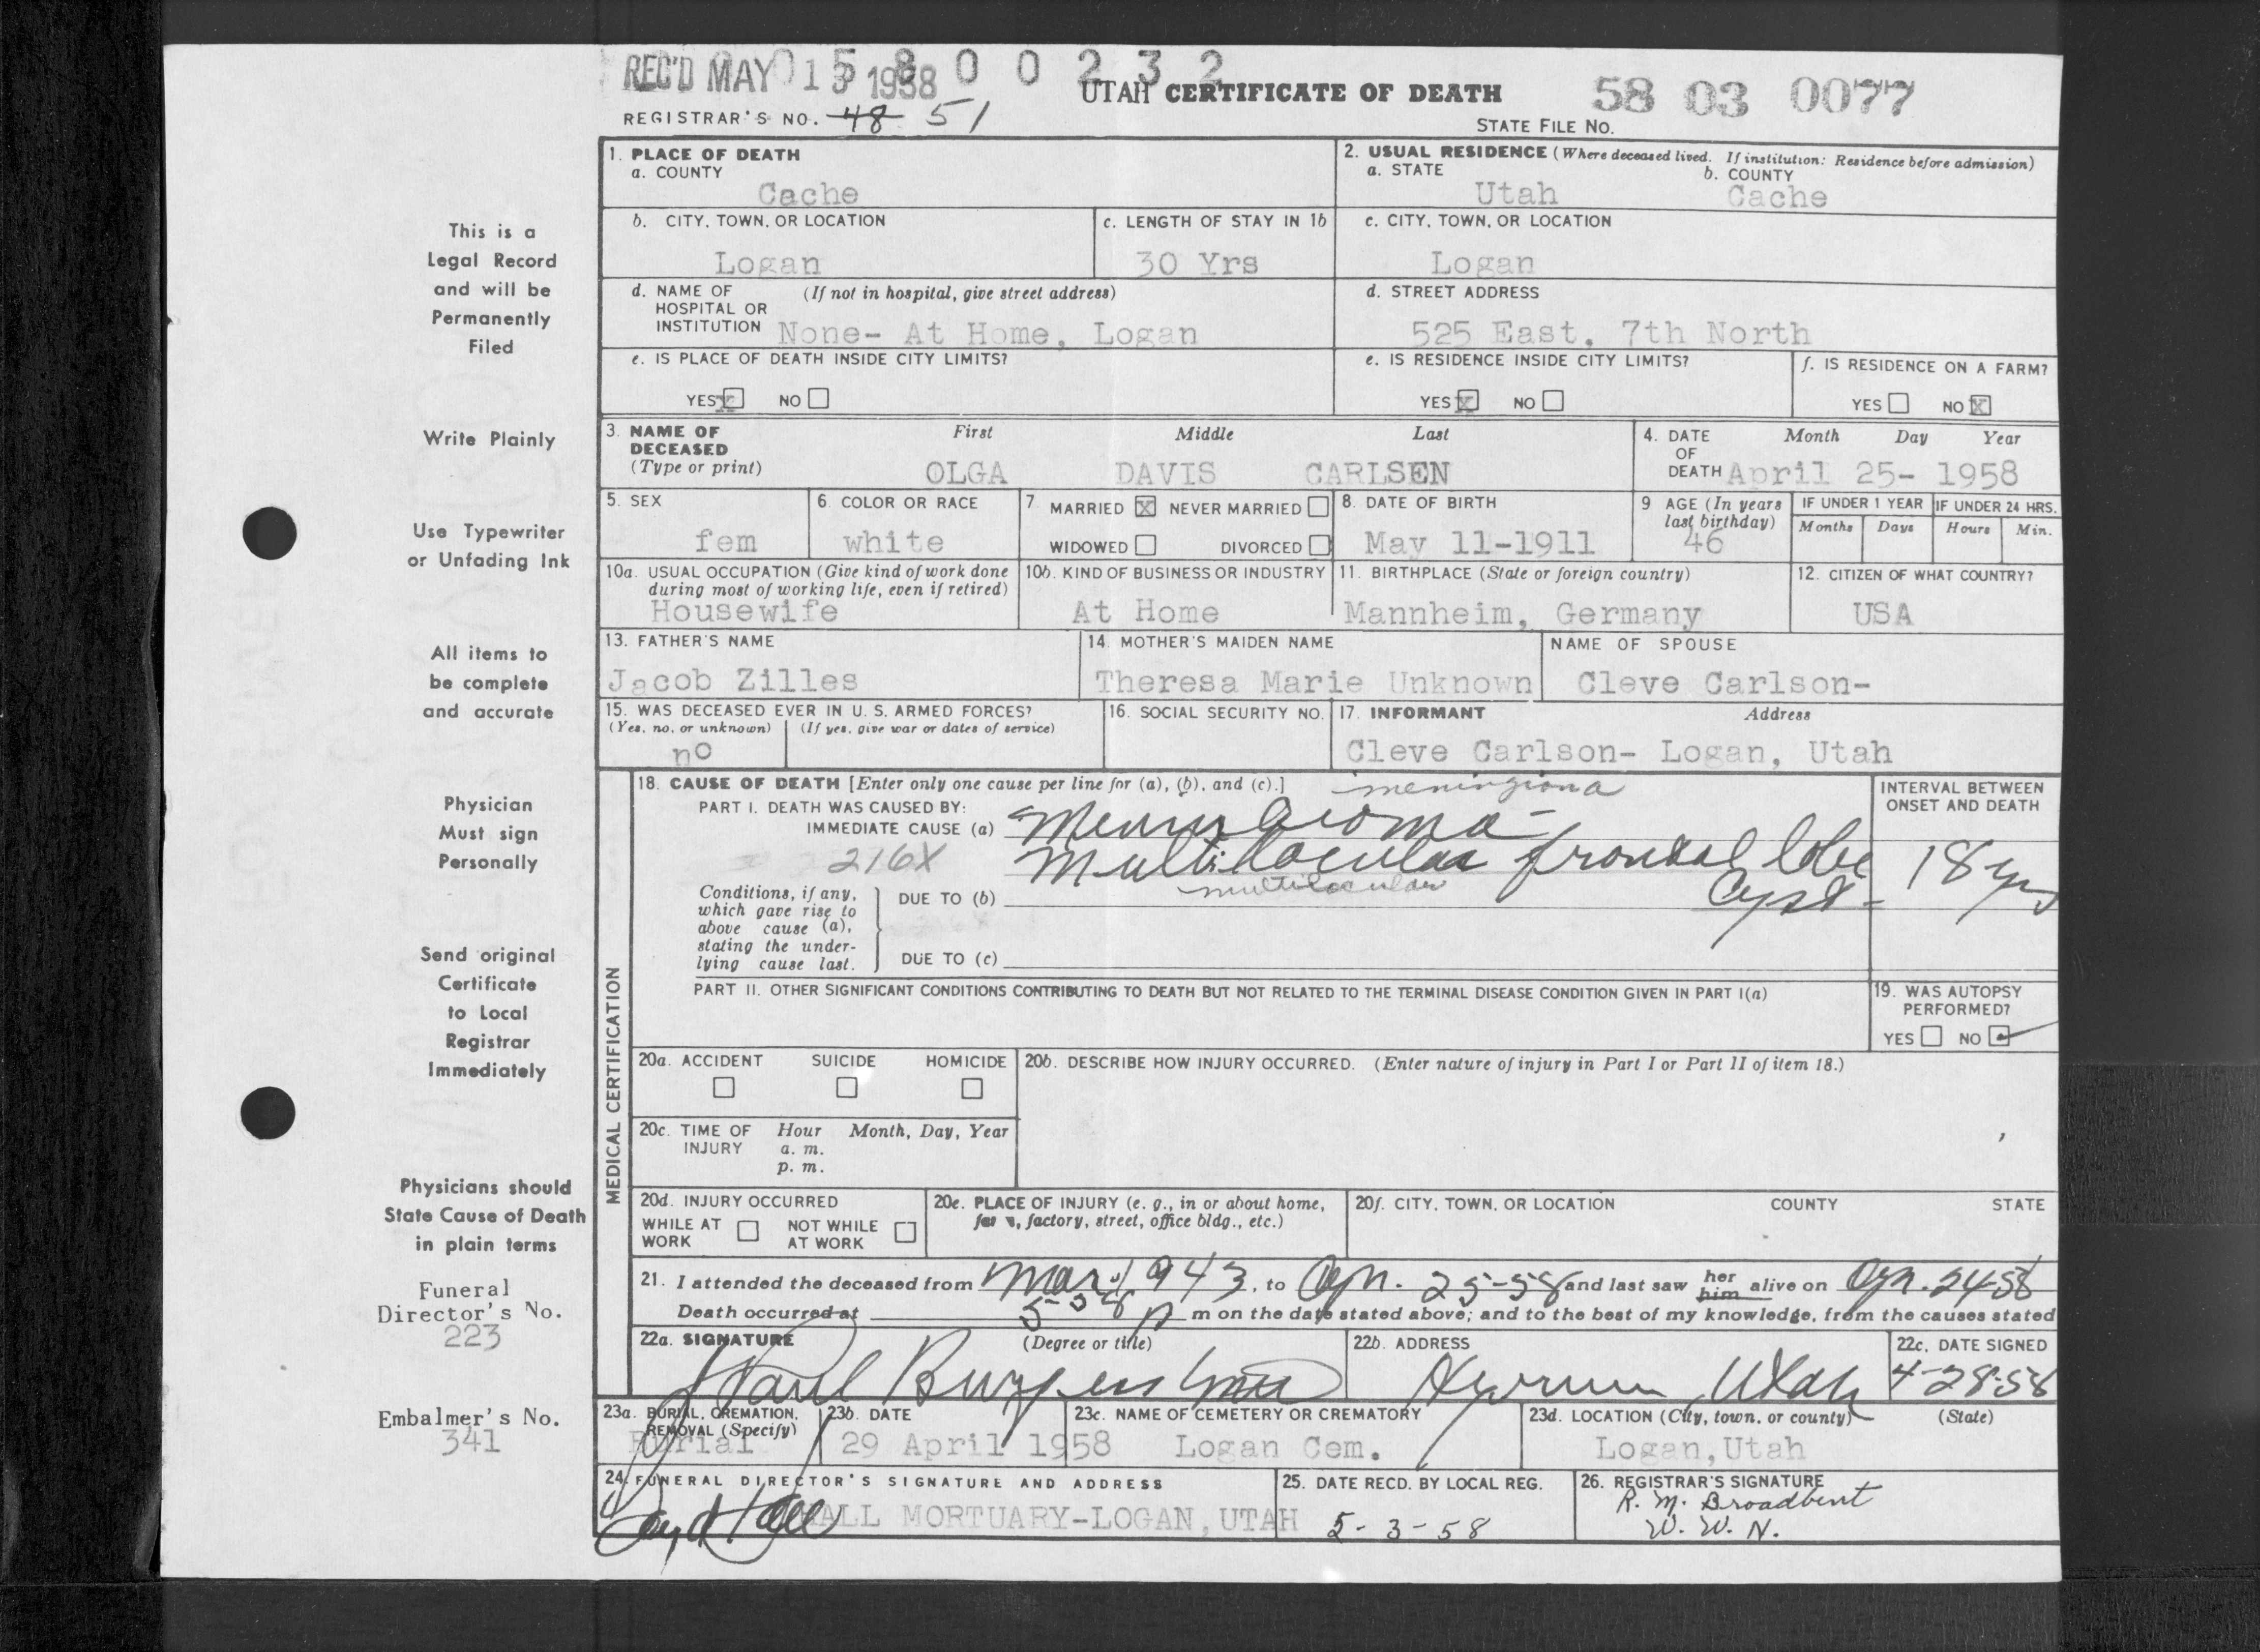 REC'D MAY 1 5 1958
0 5 8 0 0 2 3 2
UTAH CERTIFICATE OF DEATH
58 03 0077
REGISTRAR'S NO. 48 51
STATE FILE NO.
1. PLACE OF DEATH
a. COUNTY
Cache
2. USUAL RESIDENCE (Where deceased lived. If institution: Residence before admission)
a. STATE
Utah
b. COUNTY
Cache
b. CITY, TOWN, OR LOCATION
Logan
c. LENGTH OF STAY IN 1b
30 Yrs
c. CITY, TOWN, OR LOCATION
Logan
d. NAME OF HOSPITAL OR INSTITUTION (If not in hospital, give street address)
None- At Home, Logan
d. STREET ADDRESS
525 East, 7th North
e. IS PLACE OF DEATH INSIDE CITY LIMITS?
YES X NO
e. IS RESIDENCE INSIDE CITY LIMITS?
YES X NO
f. IS RESIDENCE ON A FARM?
YES NO X
3. NAME OF DECEASED (Type or print)
First Middle Last
OLGA DAVIS CARLSEN
4. DATE OF DEATH
Month Day Year
April 25- 1958
5. SEX
fem
6. COLOR OR RACE
white
7. MARRIED X NEVER MARRIED
WIDOWED DIVORCED
8. DATE OF BIRTH
May 11-1911
9 AGE (In years last birthday)
46
IF UNDER 1 YEAR
Months Days
IF UNDER 24 HRS.
Hours Min.
10a. USUAL OCCUPATION (Give kind of work done during most of working life, even if retired)
Housewife
10b. KIND OF BUSINESS OR INDUSTRY
At Home
11. BIRTHPLACE (State or foreign country)
Mannheim, Germany
12. CITIZEN OF WHAT COUNTRY?
USA
13. FATHER'S NAME
Jacob Zilles
14. MOTHER'S MAIDEN NAME
Theresa Marie Unknown
NAME OF SPOUSE
Cleve Carlson-
15. WAS DECEASED EVER IN U. S. ARMED FORCES?
(Yes, no, or unknown) (If yes, give war or dates of service)
no
16. SOCIAL SECURITY NO.
17. INFORMANT Address
Cleve Carlson- Logan, Utah
MEDICAL CERTIFICATION
18. CAUSE OF DEATH [Enter only one cause per line for (a), (b), and (c).]
meningioma
PART I. DEATH WAS CAUSED BY:
IMMEDIATE CAUSE (a) Meningioma-
216X
Multilocular frontal lobe
Cyst-
multilocular
INTERVAL BETWEEN ONSET AND DEATH
18 yrs
Conditions, if any, which gave rise to above cause (a), stating the underlying cause last.
DUE TO (b)
DUE TO (c)
PART II. OTHER SIGNIFICANT CONDITIONS CONTRIBUTING TO DEATH BUT NOT RELATED TO THE TERMINAL DISEASE CONDITION GIVEN IN PART I(a)
19. WAS AUTOPSY PERFORMED?
YES NO
20a. ACCIDENT SUICIDE HOMICIDE
20b. DESCRIBE HOW INJURY OCCURRED. (Enter nature of injury in Part I or Part II of item 18.)
20c. TIME OF INJURY
Hour Month, Day, Year
a. m.
p. m.
20d. INJURY OCCURRED
WHILE AT WORK NOT WHILE AT WORK
20e. PLACE OF INJURY (e. g., in or about home, farm, factory, street, office bldg., etc.)
20f. CITY, TOWN, OR LOCATION COUNTY STATE
21. I attended the deceased from Mar. 1943, to Apr. 25-58 and last saw her him alive on Apr. 24-58
Death occurred at 5 08 p m on the date stated above; and to the best of my knowledge, from the causes stated
22a. SIGNATURE (Degree or title)
J Paul Burgess
22b. ADDRESS
Hyrum, Utah
22c. DATE SIGNED
4-28-58
23a. BURIAL, CREMATION, REMOVAL (Specify)
Burial
23b. DATE
29 April 1958
23c. NAME OF CEMETERY OR CREMATORY
Logan Cem.
23d. LOCATION (City, town, or county) (State)
Logan, Utah
24. FUNERAL DIRECTOR'S SIGNATURE AND ADDRESS
HALL MORTUARY-LOGAN, UTAH
25. DATE RECD. BY LOCAL REG.
5-3-58
26. REGISTRAR'S SIGNATURE
R. M. Broadbent
W. W. N.
This is a
Legal Record
and will be
Permanently
Filed
Write Plainly
Use Typewriter
or Unfading Ink
All items to
be complete
and accurate
Physician
Must sign
Personally
Send original
Certificate
to Local
Registrar
Immediately
Physicians should
State Cause of Death
in plain terms
Funeral
Director's No.
223
Embalmer's No.
341